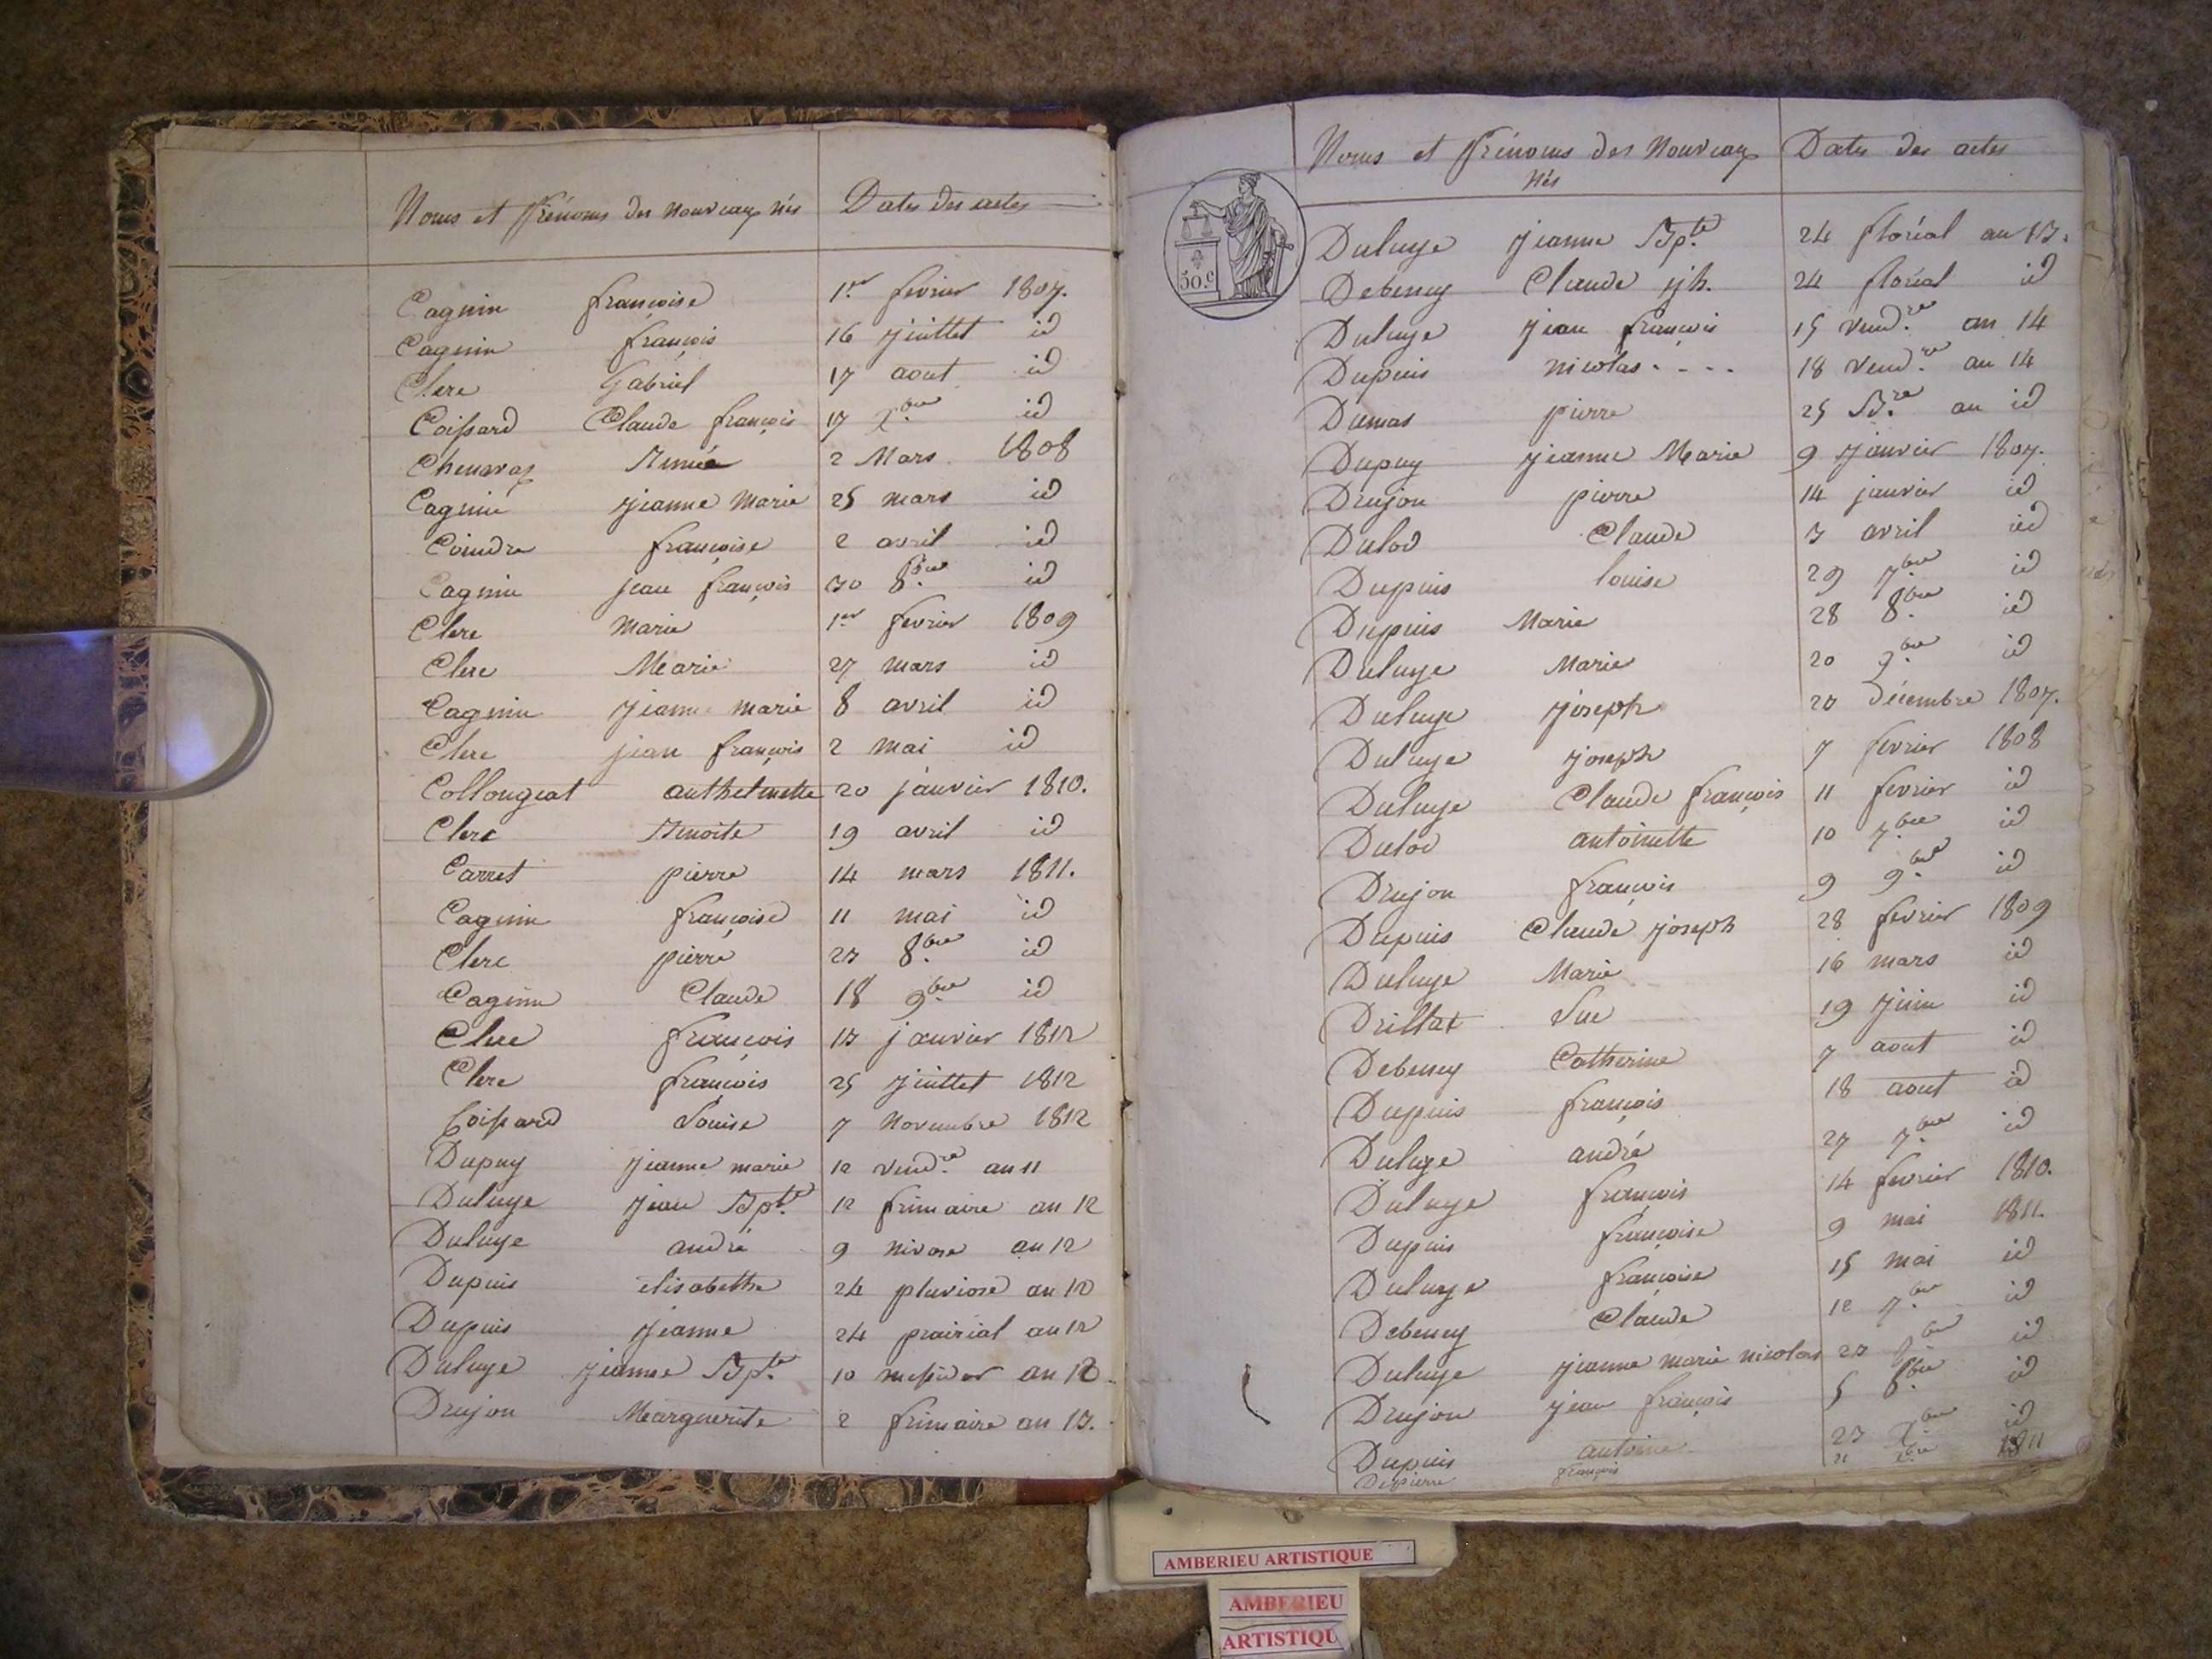 Noms et Prénoms des Nouveaux nés Dates des actes
Cagnin françoise 1er fevrier 1807.
Cagnin françois 16 juillet id
Clerc Gabriel 17 aout id
Coissard Claude françois 17 Xbre id
Chenavaz Aimée 2 Mars 1808
Cagnin jeanne Marie 25 mars id
Coindre françoise 2 avril id
Cagnin jean françois 30 8bre id
Clerc Marie 1er fevrier 1809
Clerc Marie 27 mars id
Cagnin jeanne marie 8 avril id
Clerc jean françois 2 mai id
Collongeat anthelmette 20 janvier 1810.
Clerc Benoite 19 avril id
Carret pierre 14 mars 1811.
Cagnin françoise 11 mai id
Clerc pierre 23 8bre id
Cagnin Claude 18 9bre id
Clerc françois 13 janvier 1812
Clerc françois 25 juillet 1812
Coissard Louise 7 Novembre 1812
Dupuy jeanne marie 12 vendre an 11
Duluye jean Bpte 12 frimaire an 12
Duluye andré 9 nivose an 12
Dupuis elisabethe 24 pluviose an 12
Dupuis jeanne 24 prairial an 12
Duluye jeanne Bpte 10 messidor an 12
Drujon Marguerite 2 frimaire an 13.
Noms et Prénoms des Nouveaux nés Dates des actes
50.c
Duluye jeanne Bpte 24 floréal an 13.
Debeney Claude jh. 24 floréal id
Duluye jean françois 15 vendre an 14
Dupuis nicolas . - - - 18 vendre an 14
Dumas pierre 25 Bre an id
Dupuy jeanne Marie 9 janvier 1807.
Drujon pierre 14 janvier id
Dulod Claude 3 avril id
Dupuis louise 29 7bre id
Dupuis Marie 28 8bre id
Duluye Marie 20 9bre id
Duluye joseph 23 décembre 1807.
Duluye joseph 7 fevrier 1808
Duluye Claude françois 11 fevrier id
Dulod antoinette 10 7bre id
Drujon françois 9 9bre id
Dupuis Claude joseph 28 fevrier 1809
Duluye Marie 16 mars id
Drillat 19 juin id
Debeney Catherine 7 aout id
Dupuis françois 18 aout id
Duluye andré 27 7bre id
Duluye françois 14 fevrier 1810.
Dupuis françoise 9 mai 1811.
Duluye françoise 15 mai id
Debeney Claude 12 7bre id
Duluye jeanne marie nicolas 23 id
Drujon jean françois 5 8bre id
Dupuis antoine 23 Xbre id
Depierre françois Xbre 1811
AMBERIEU ARTISTIQUE
AMBERIEU
ARTISTIQU